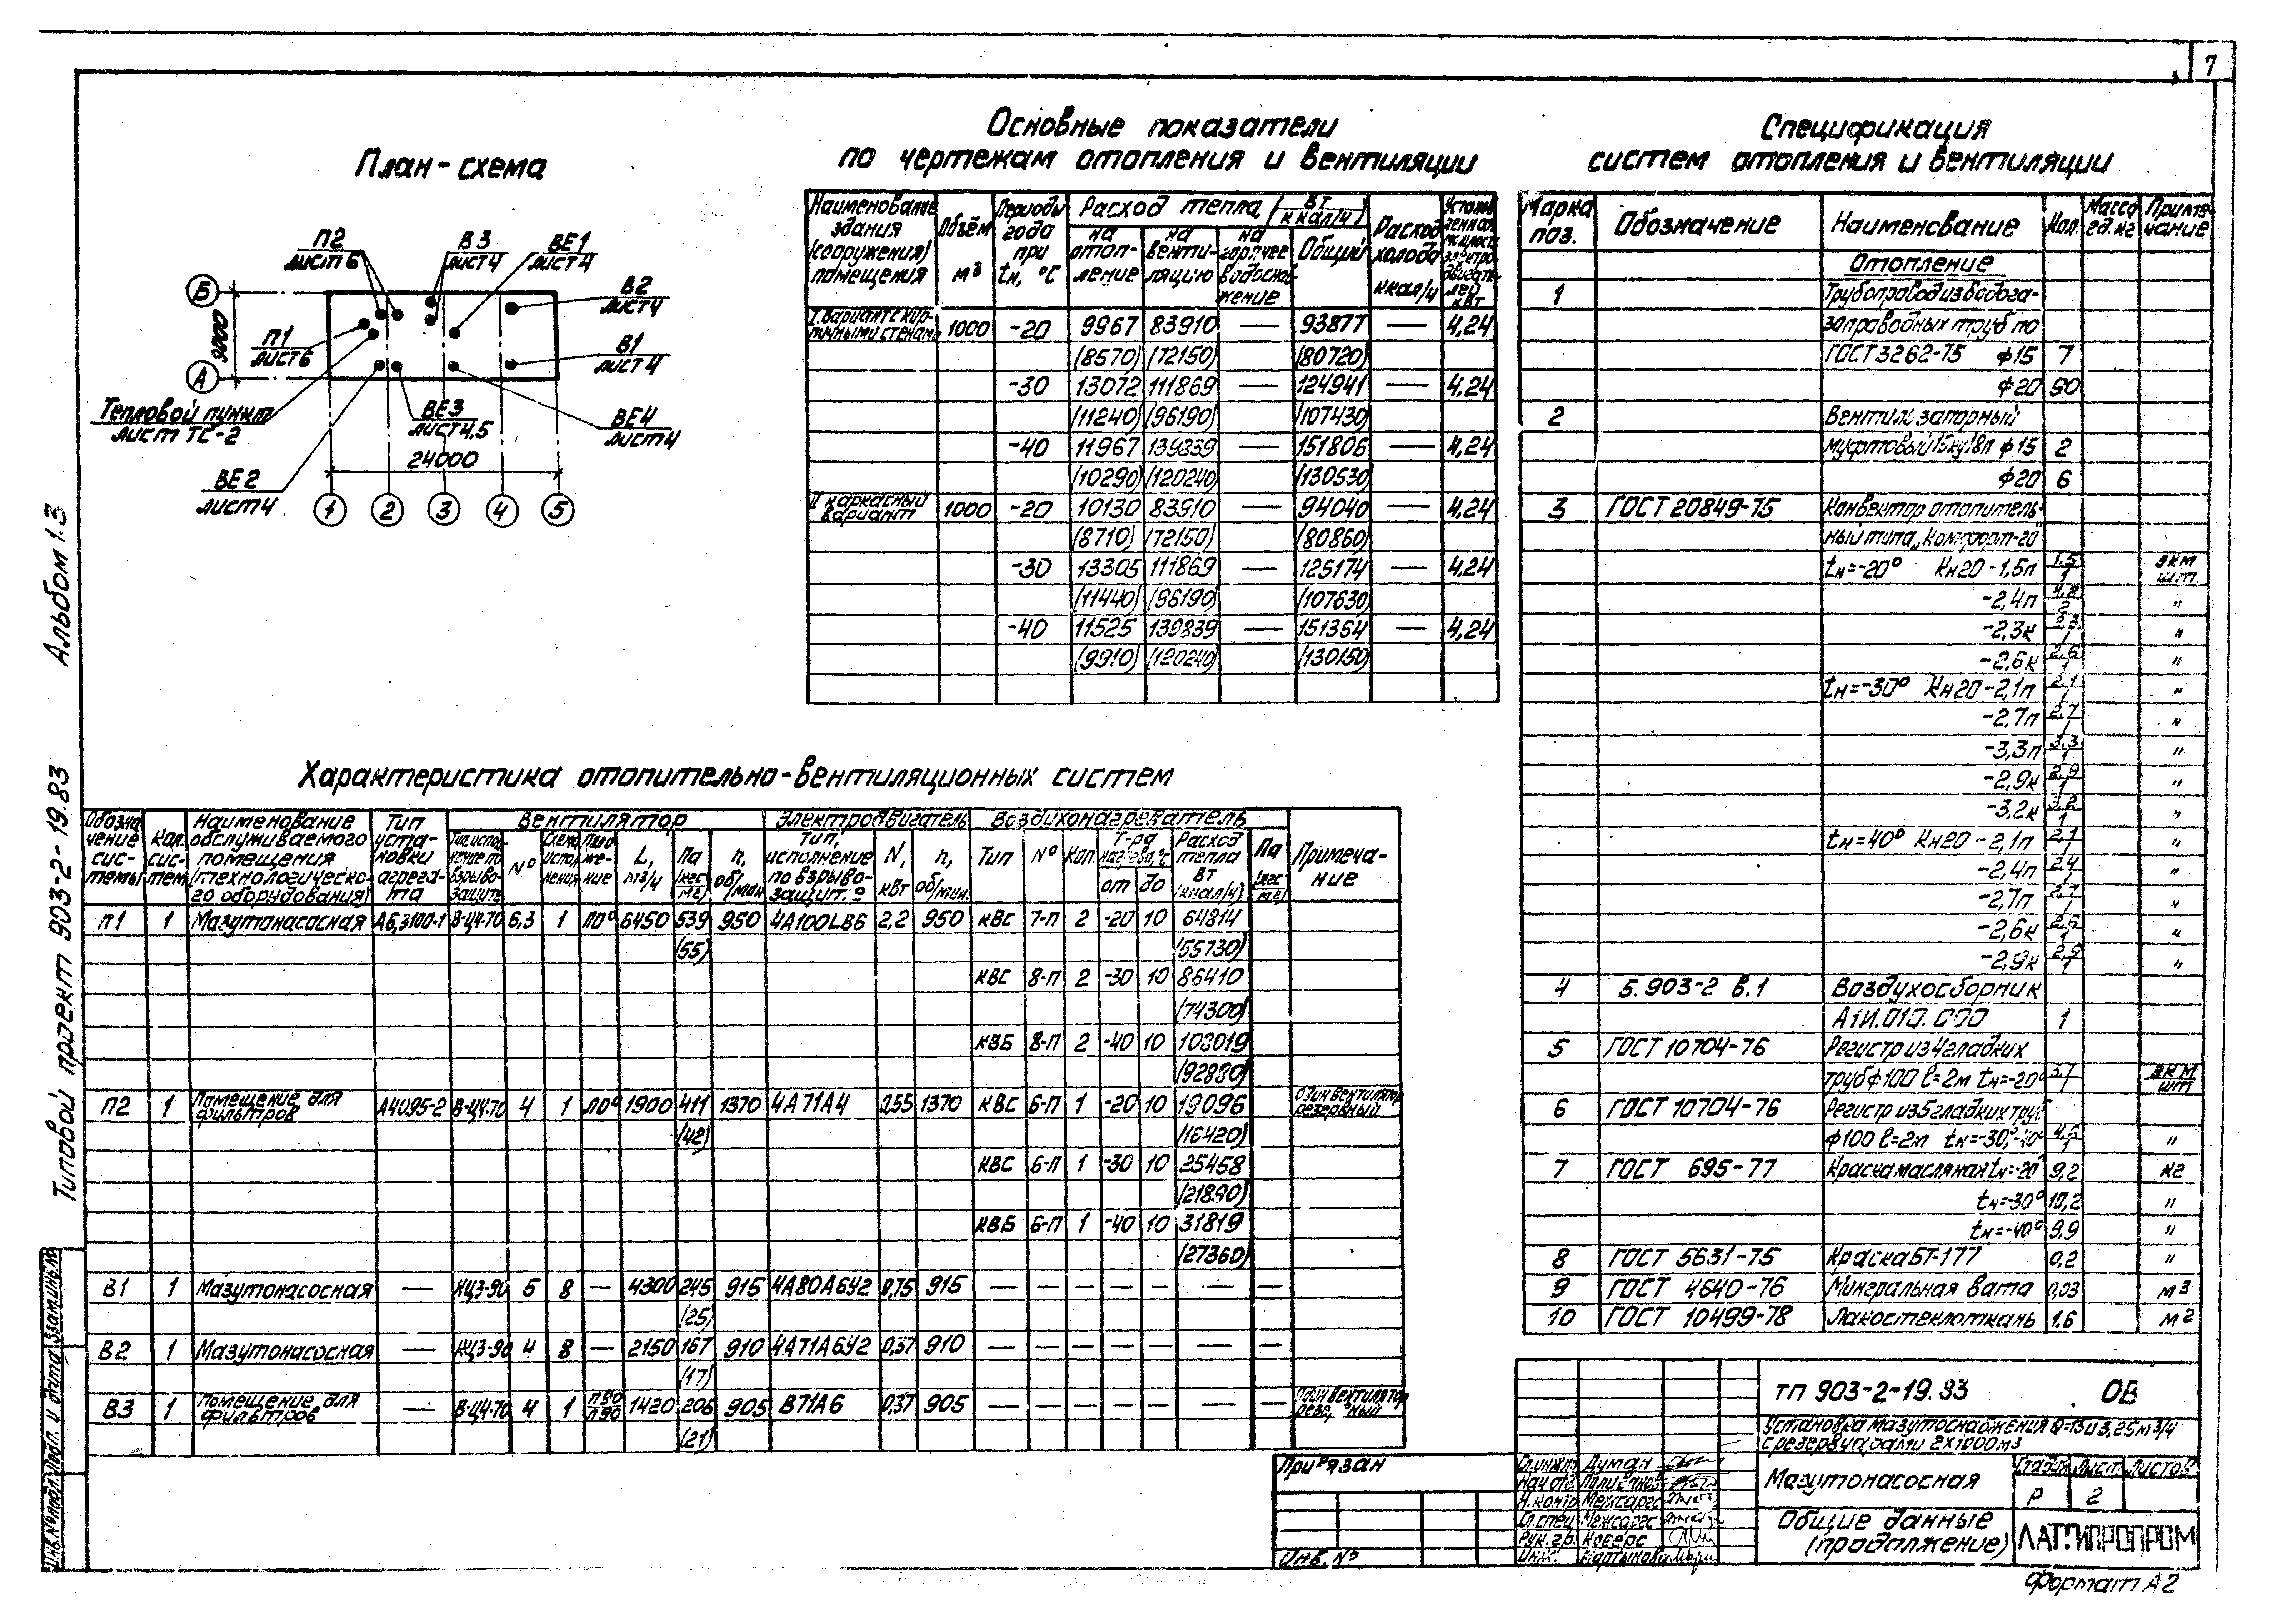 7
План-схема
П2
лист 6
В3
лист 4
ВЕ1
лист 4
В2
лист 4
В1
лист 4
П1
лист 6
Б
А
9000
Тепловой пункт
лист ТС-2
ВЕ3
лист 4,5
ВЕ4
лист 4
ВЕ2
лист 4
24000
1 2 3 4 5
Альбом 1.3
Типовой проект 903-2-19.83
Основные показатели
по чертежам отопления и вентиляции
Наименование здания (сооружения) помещения | Объём м³ | Периоды года при tн, °С | Расход тепла, Вт (ккал/ч) | Расход холода ккал/ч | Установленная мощность электродвигателей кВт
на отопление | на вентиляцию | на горячее водоснабжение | Общий
I вариант с кирпичными стенами 1000 -20 9967 83910 — 93877 — 4,24
(8570) (72150) (80720)
-30 13072 111869 — 124941 — 4,24
(11240) (96190) (107430)
-40 11967 139839 — 151806 — 4,24
(10290) (120240) (130530)
II каркасный вариант 1000 -20 10130 83910 — 94040 — 4,24
(8710) (72150) (80860)
-30 13305 111869 — 125174 — 4,24
(11440) (96190) (107630)
-40 11525 139839 — 151364 — 4,24
(9910) (120240) (130150)
Спецификация
систем отопления и вентиляции
Марка поз. | Обозначение | Наименование | Кол. | Масса ед. кг | Примечание
Отопление
1 Трубопровод из водога-
зопроводных труб по
ГОСТ 3262-75 ф15 7
ф20 50
2 Вентиль запорный
муфтовый 15кч18п ф15 2
ф20 6
3 ГОСТ 20849-75 Конвектор отопитель-
ный типа „Комфорт-20"
tн=-20° Кн20-1,5п 1,5/1 экм/шт
-2,4п 4,8/2 "
-2,3к 2,3/1 "
-2,6к 2,6/1 "
tн=-30° Кн20-2,1п 2,1/1 "
-2,7п 2,7/1 "
-3,3п 3,3/1 "
-2,9к 2,9/1 "
-3,2к 3,2/1 "
tн=40° Кн20-2,1п 2,1/1 "
-2,4п 2,4/1 "
-2,7п 2,7/1 "
-2,6к 2,6/1 "
-2,9к 2,9/1 "
4 5.903-2 в.1 Воздухосборник
А1И.010.000 1
5 ГОСТ 10704-76 Регистр из 4 гладких
труб ф100 l=2м tн=-20° 3,7/1 экм/шт
6 ГОСТ 10704-76 Регистр из 5 гладких труб
ф100 l=2м tн=-30°,-40° "
7 ГОСТ 695-77 Краска масляная tн=-20° 9,2 кг
tн=-30° 10,2 "
tн=-40° 9,9 "
8 ГОСТ 5631-75 Краска БТ-177 0,2 "
9 ГОСТ 4640-76 Минеральная вата 0,03 м³
10 ГОСТ 10499-78 Лакостеклоткань 1,6 м²
Характеристика отопительно-вентиляционных систем
Обозначение системы | Кол. систем | Наименование обслуживаемого помещения (технологического оборудования) | Тип установки агрегата | Вентилятор | Электродвигатель | Воздухонагреватель | Примечание
Тип, исполнение по взрывозащите | № | Схема исполнения | Положение | L, м³/ч | Па (кгс/м²) | n, об/мин | Тип, исполнение по взрывозащит. | N, кВт | n, об/мин. | Тип | № | Кол. | Т-ра нагрева, °С от до | Расход тепла Вт (ккал/ч) | Па (кгс/м²)
П1 1 Мазутонасосная А6,3100-1 В-Ц4-70 6,3 1 ЛО° 6450 539 950 4А100LВ6 2,2 950 КВС 7-П 2 -20 10 64814
(55) (55730)
КВС 8-П 2 -30 10 86410
(74300)
КВБ 8-П 2 -40 10 108019
(92880)
П2 1 Помещение для фильтров А4095-2 В-Ц4-70 4 1 ЛО° 1900 411 1370 4А71А4 0,55 1370 КВС 6-П 1 -20 10 19096 Один вентилятор резервный
(42) (16420)
КВС 6-П 1 -30 10 25458
(21890)
КВБ 6-П 1 -40 10 31819
(27360)
В1 1 Мазутонасосная — КЦ3-90 5 8 — 4300 245 915 4А80А6У2 0,75 915 — — — — — — —
(25)
В2 1 Мазутонасосная — КЦ3-90 4 8 — 2150 167 910 4А71А6У2 0,37 910 — — — — — — —
(17)
В3 1 Помещение для фильтров — В-Ц4-70 4 1 П90 Л90 1420 206 905 В71А6 0,37 905 — — — — — — — Один вентилятор резервный
(21)
Привязан
Инв. №
Инв.№подл. Подп. и дата Взам.инв.№
ТП 903-2-19.83 ОВ
Установка мазутоснабжения Q=13 и 3,25 м³/ч
с резервуарами 2х1000 м3
Гл.инж.пр. Думан
Нач.отд.
Н.контр. Межсаргс
Гл.спец. Межсаргс
Рук.гр.
Инж. Мартынова
Мазутонасосная
Стадия Лист Листов
Р 2
Общие данные
(продолжение)
ЛАТГИПРОПРОМ
Формат А2